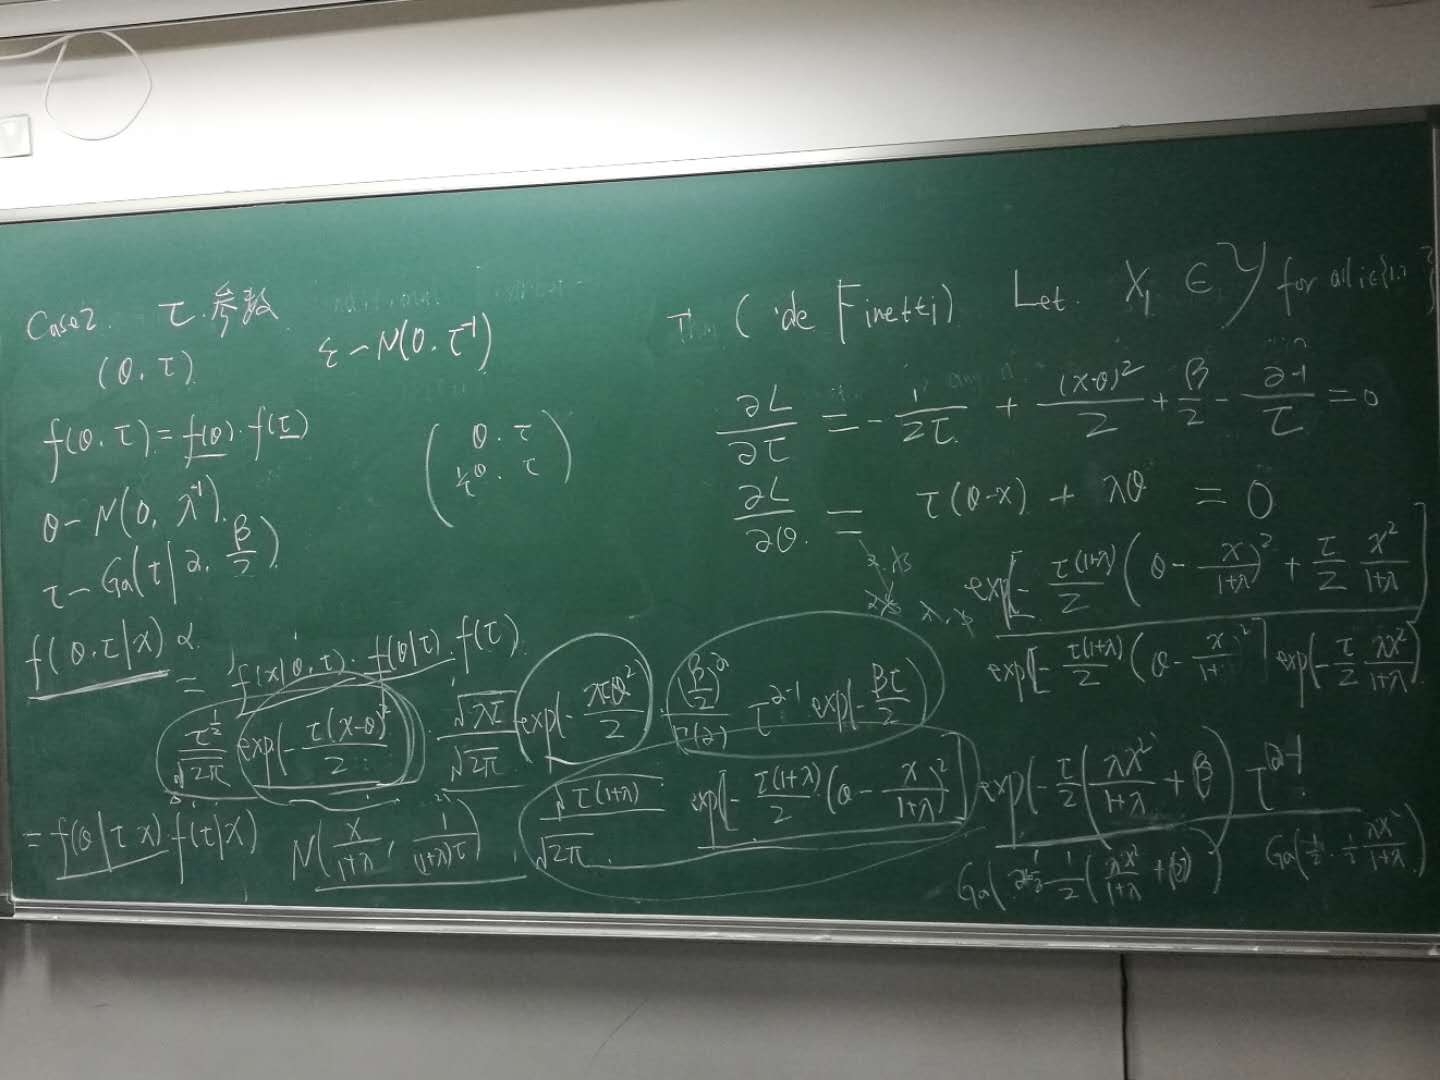 Case2. τ.参数
(θ.τ) ε~N(0.τ⁻¹)
f(θ.τ)=f(θ).f(τ)
(θ.τ
θ~N(0, λ⁻¹).
τ~Ga(τ|α. β/2)
f(θ.τ|x) ∝
= f(x|θ.τ). f(θ|τ).f(τ).
τ^½/√2π exp(-τ(x-θ)²/2) . √λτ/√2π exp(-λτθ²/2) . (β/2)^α/Γ(α) τ^α-1 exp(-βτ/2)
= f(θ|τ x).f(τ|x) N(x/1+λ, 1/(1+λ)τ) √τ(1+λ)/√2π. exp[-τ(1+λ)/2 (θ-x/1+λ)²] exp(-τ/2(λx²/1+λ+β)) τ^α-1
(de Finetti) Let X₁ ∈ for all i∈{1,2
∂L/∂τ = -1/2τ + (x-θ)²/2 + β/2 - α-1/τ = 0
∂L/∂θ. = τ(θ-x) + λθ = 0
exp[-τ(1+λ)/2 (θ-x/1+λ)² + τ/2 x²/1+λ]
exp[-τ(1+λ)/2 (θ-x/1+ ²] exp(-τ/2 λx²/1+λ)
1/2(λx²/1+λ+β))